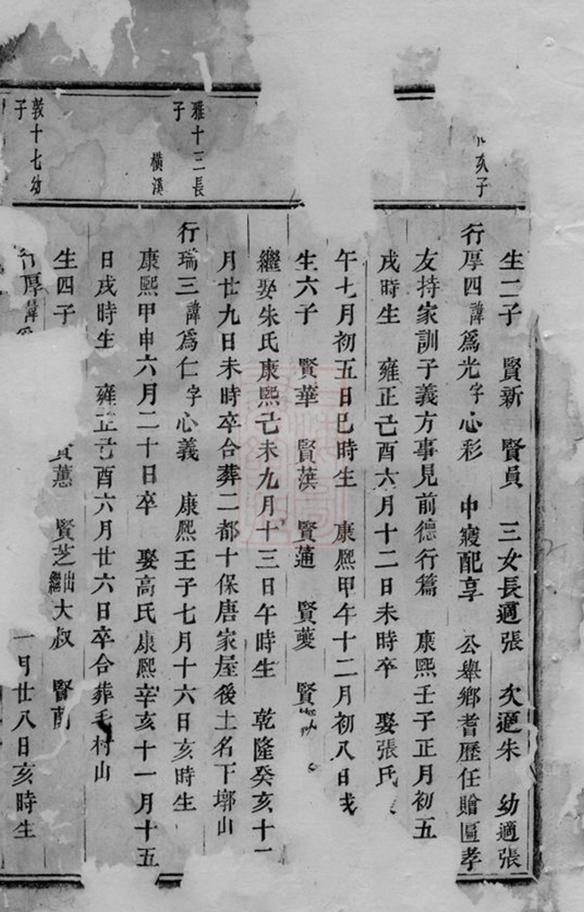 亥子
生二子 賢新 賢員 三女長適張 次適朱 幼適張
行厚四諱為光字心彩 中寢配享 公舉鄉耆歷任贈匾孝
友持家訓子義方事見前德行篇 康熙壬子正月初五
戌時生 雍正己酉六月十二日未時卒 娶張氏
午七月初五日巳時生 康熙甲午十二月初八日戌
生六子 賢華 賢蓮 賢夔 賢
繼娶朱氏康熙己未九月十三日午時生 乾隆癸亥十一
月廿九日未時卒合葬二都十保唐家屋後土名下塘山
雅十三長
子 橫溪
行瑞三諱為仁字心義 康熙壬子七月十六日亥時生
康熙甲申六月二十日卒 娶高氏康熙辛亥十一月十五
日戌時生 雍正己酉六月廿六日卒合葬毛村山
生四子 蕙 賢芝出繼大叔 賢
敦十七幼
子
行厚諱 一月廿八日亥時生